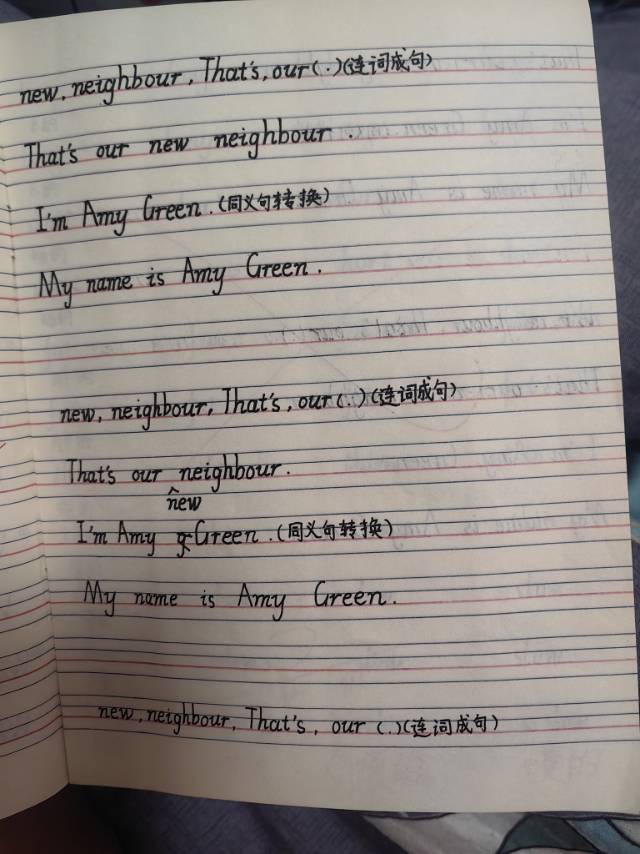 new, neighbour, That's, our(.)(连词成句)
That's our new neighbour.
I'm Amy Green.(同义句转换)
My name is Amy Green.
new, neighbour, That's, our(.)(连词成句)
That's our neighbour.
new
I'm Amy Green.(同义句转换)
My name is Amy Green.
new, neighbour, That's, our (.)(连词成句)